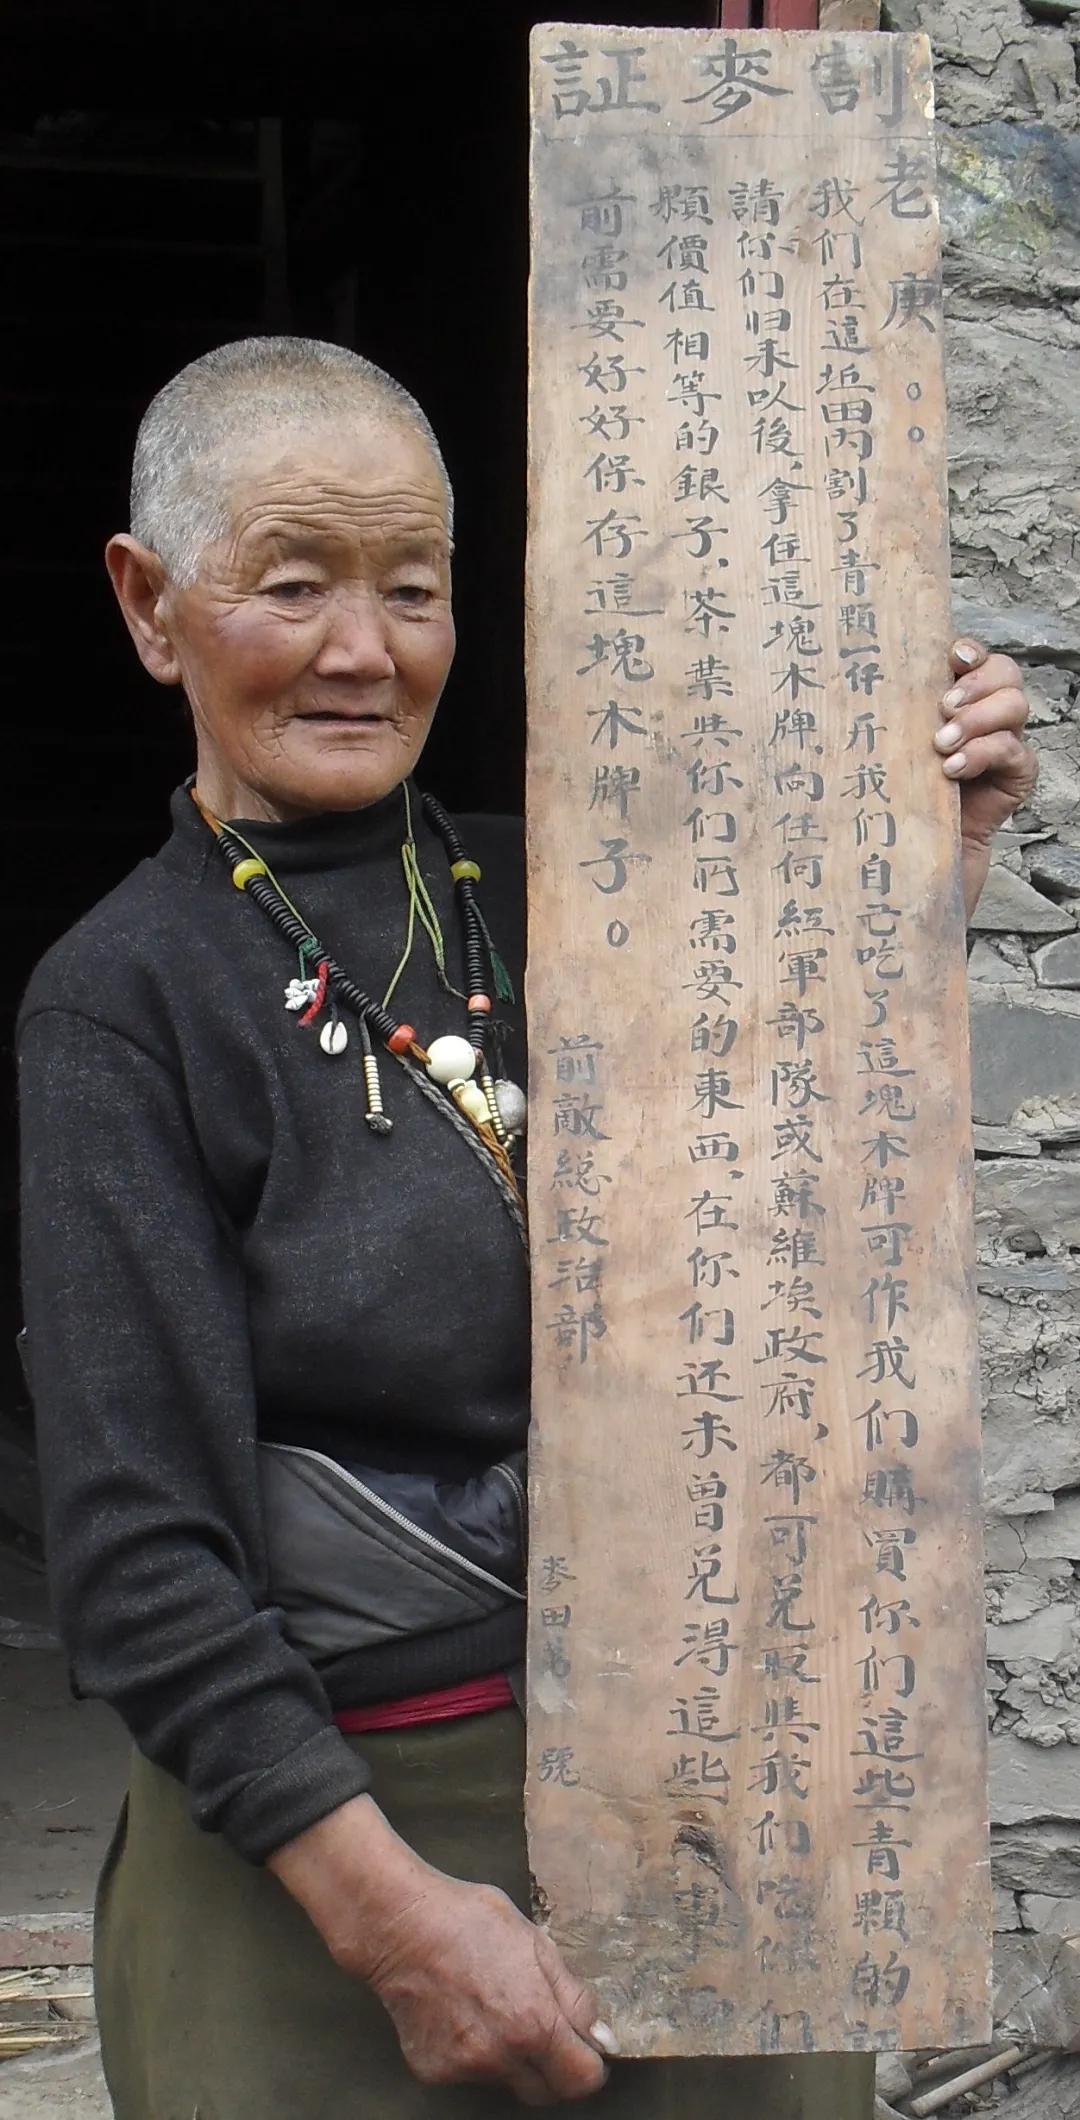 割麥証
老庚。。
我们在這坵田內割了青顆一仟斤我们自己吃了這塊木牌可作我们購買你们這些青顆的証
請你们归来以後、拿住這塊木牌、向任何紅軍部隊或蘇維埃政府、都可兑取與我们吃你们
顆價值相等的銀子、茶葉與你们所需要的東西、在你们还未曾兑得這些東西
前需要好好保存這塊木牌子。
前敵総政治部
麥田第 號